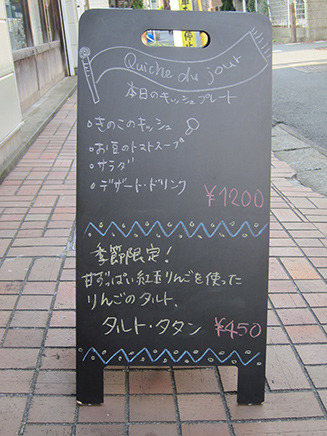 Quiche du jour
本日のキッシュプレート
・きのこのキッシュ
・お豆のトマトスープ
・サラダ
・デザート・ドリンク
¥1200
季節限定!
甘ずっぱい紅玉りんごを使った
りんごのタルト、
タルト・タタン ¥450